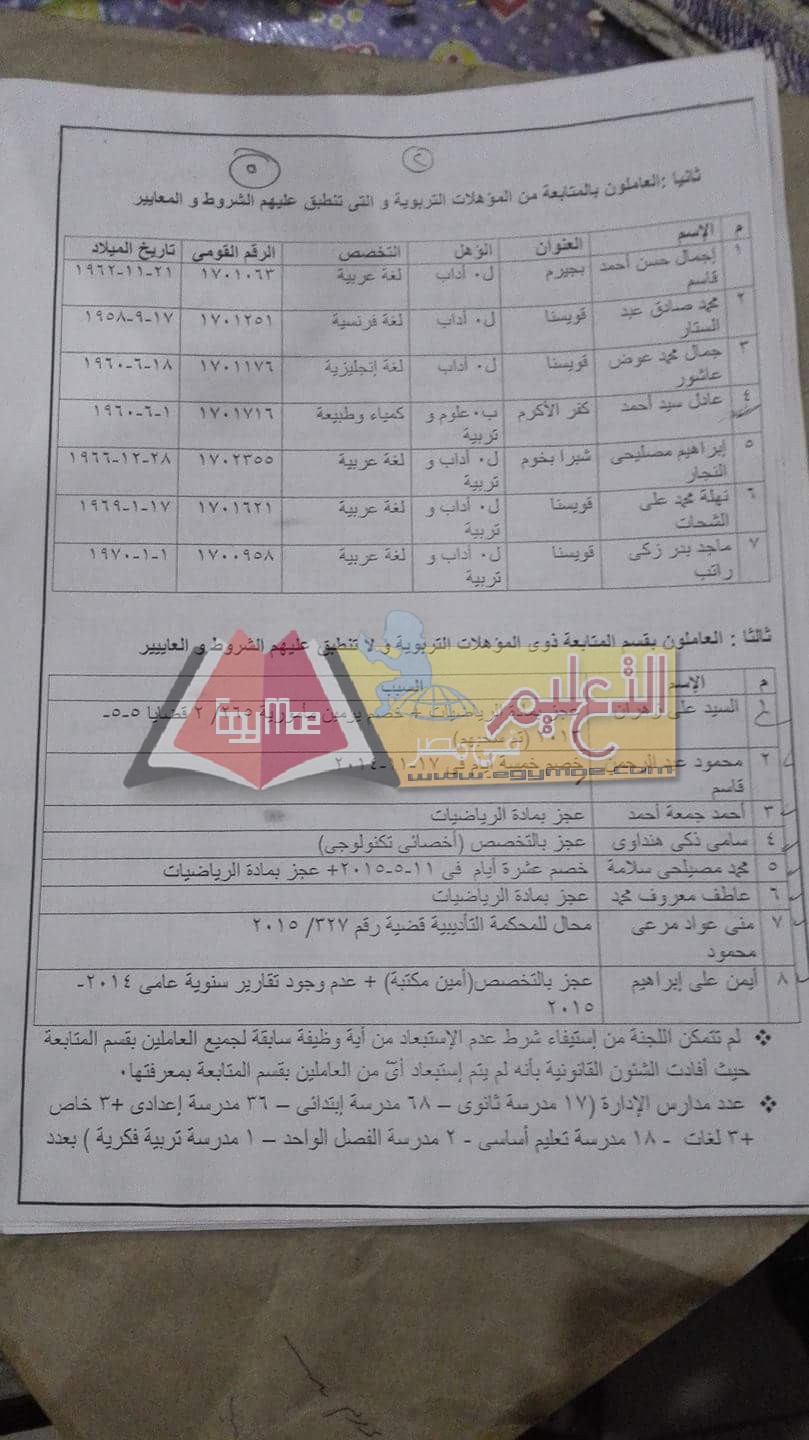 ٢
٥
ثانيا :العاملون بالمتابعة من المؤهلات التربوية و التى تنطبق عليهم الشروط و المعايير
م الإسم العنوان الؤهل التخصص الرقم القومى تاريخ الميلاد
١ إجمال حسن أحمد بجيرم ل٠ أداب لغة عربية ١٧٠١٠٦٣ ٢١-١١-١٩٦٢
قاسم
٢ محمد صادق عبد قويسنا ل٠ أداب لغة فرنسية ١٧٠١٢٥١ ١٧-٩-١٩٥٨
الستار
٣ جمال محمد عوض قويسنا ل٠ أداب لغة إنجليزية ١٧٠١١٧٦ ١٨-٦-١٩٦٠
عاشور
٤ عادل سيد أحمد كفر الأكرم ب٠ علوم و كمياء وطبيعة ١٧٠١٧١٦ ١-٦-١٩٦٠
تربية
٥ إبراهيم مصليحى شبرا بخوم ل٠ أداب و لغة عربية ١٧٠٢٣٥٥ ٢٨-١٢-١٩٦٦
النجار تربية
٦ نهلة محمد على قويسنا ل٠ أداب و لغة عربية ١٧٠١٦٢١ ١٧-١-١٩٦٩
الشحات تربية
٧ ماجد بدر زكى قويسنا ل٠ أداب و لغة عربية ١٧٠٠٩٥٨ ١-١-١٩٧٠
راتب تربية
ثالثا : العاملون بقسم المتابعة ذوى المؤهلات التربوية و لا تنطبق عليهم الشروط و العايير
م الإسم السبب
السيد على زهران عجز بمادة الرياضيات + خصم يومين مأمورية ٢٦٥/ ٢ قضايا ٥-٥-
٢ محمود عبد الرحمن خصم خمسة أيام فى ١٧-١١-٢٠١٤
قاسم
٣ أحمد جمعة أحمد عجز بمادة الرياضيات
٤ سامى ذكى هنداوى عجز بالتخصص (أخصائى تكنولوجى)
٥ محمد مصيلحى سلامة خصم عشرة أيام فى ١١-٥-٢٠١٥+ عجز بمادة الرياضيات
٦ عاطف معروف محمد عجز بمادة الرياضيات
٧ منى عواد مرعى محال للمحكمة التأديبية قضية رقم ٣٢٧/ ٢٠١٥
محمود
٨ أيمن على إبراهيم عجز بالتخصص(أمين مكتبة) + عدم وجود تقارير سنوية عامى ٢٠١٤-
٢٠١٥
❖ لم تتمكن اللجنة من إستيفاء شرط عدم الإستبعاد من أية وظيفة سابقة لجميع العاملين بقسم المتابعة
حيث أفادت الشئون القانونية بأنه لم يتم إستبعاد أىّ من العاملين بقسم المتابعة بمعرفتها٠
❖ عدد مدارس الإدارة (١٧ مدرسة ثانوى – ٦٨ مدرسة إبتدائى – ٣٦ مدرسة إعدادى +٣ خاص
+٣ لغات - ١٨ مدرسة تعليم أساسى - ٢ مدرسة الفصل الواحد – ١ مدرسة تربية فكرية ) بعدد
التعليم
فى مصر
www.egymoe.com
egyMoe